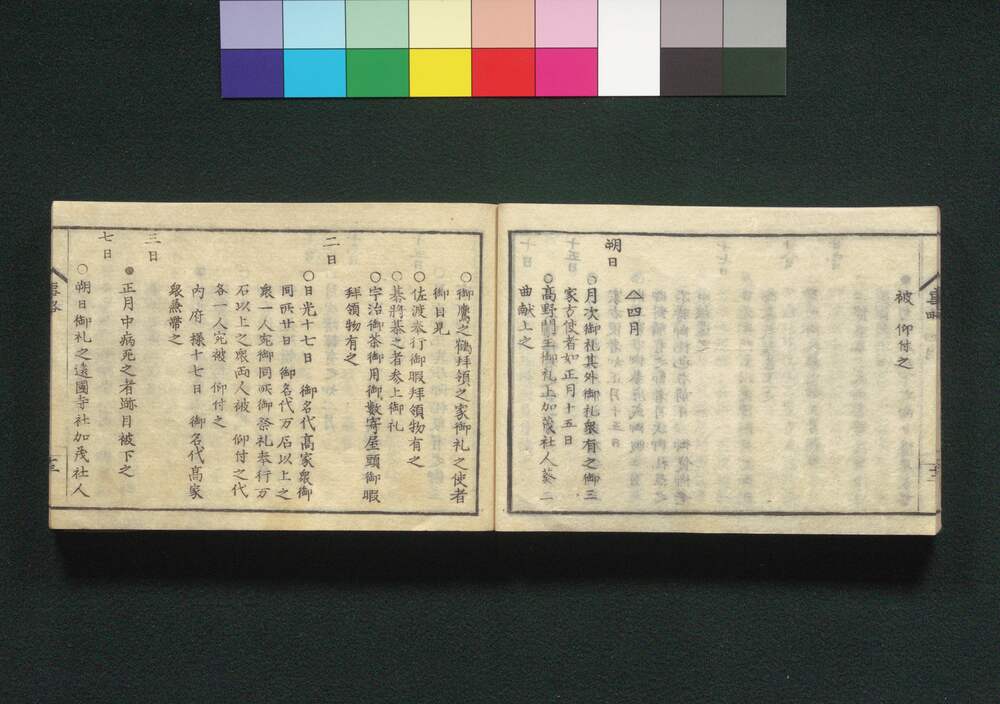 被 仰付之
四月
朔日
○月次御礼其外御礼衆有之御三
家古使者如正月十五日
○高野門主御礼上加茂社人葵二
曲献上之
○御鷹之鶴拝領之家御礼之使者
御目見
○佐渡奉行御暇拝領物有之
○碁将碁之者参上御礼
○宇治御茶御用御数寄屋頭御暇
拝領物有之
二日
○日光十七日 御名代高家衆御
同所廿日 御名代万石以上之
衆一人宛御同所御祭礼奉行万
石以上之衆両人被 仰付之代
各一人宛被 仰付之
内府様十七日 御名代高家
衆兼帯之
三日
●正月中病死之者跡目被下之
七日
○朔日御礼之遠国寺社加茂社人